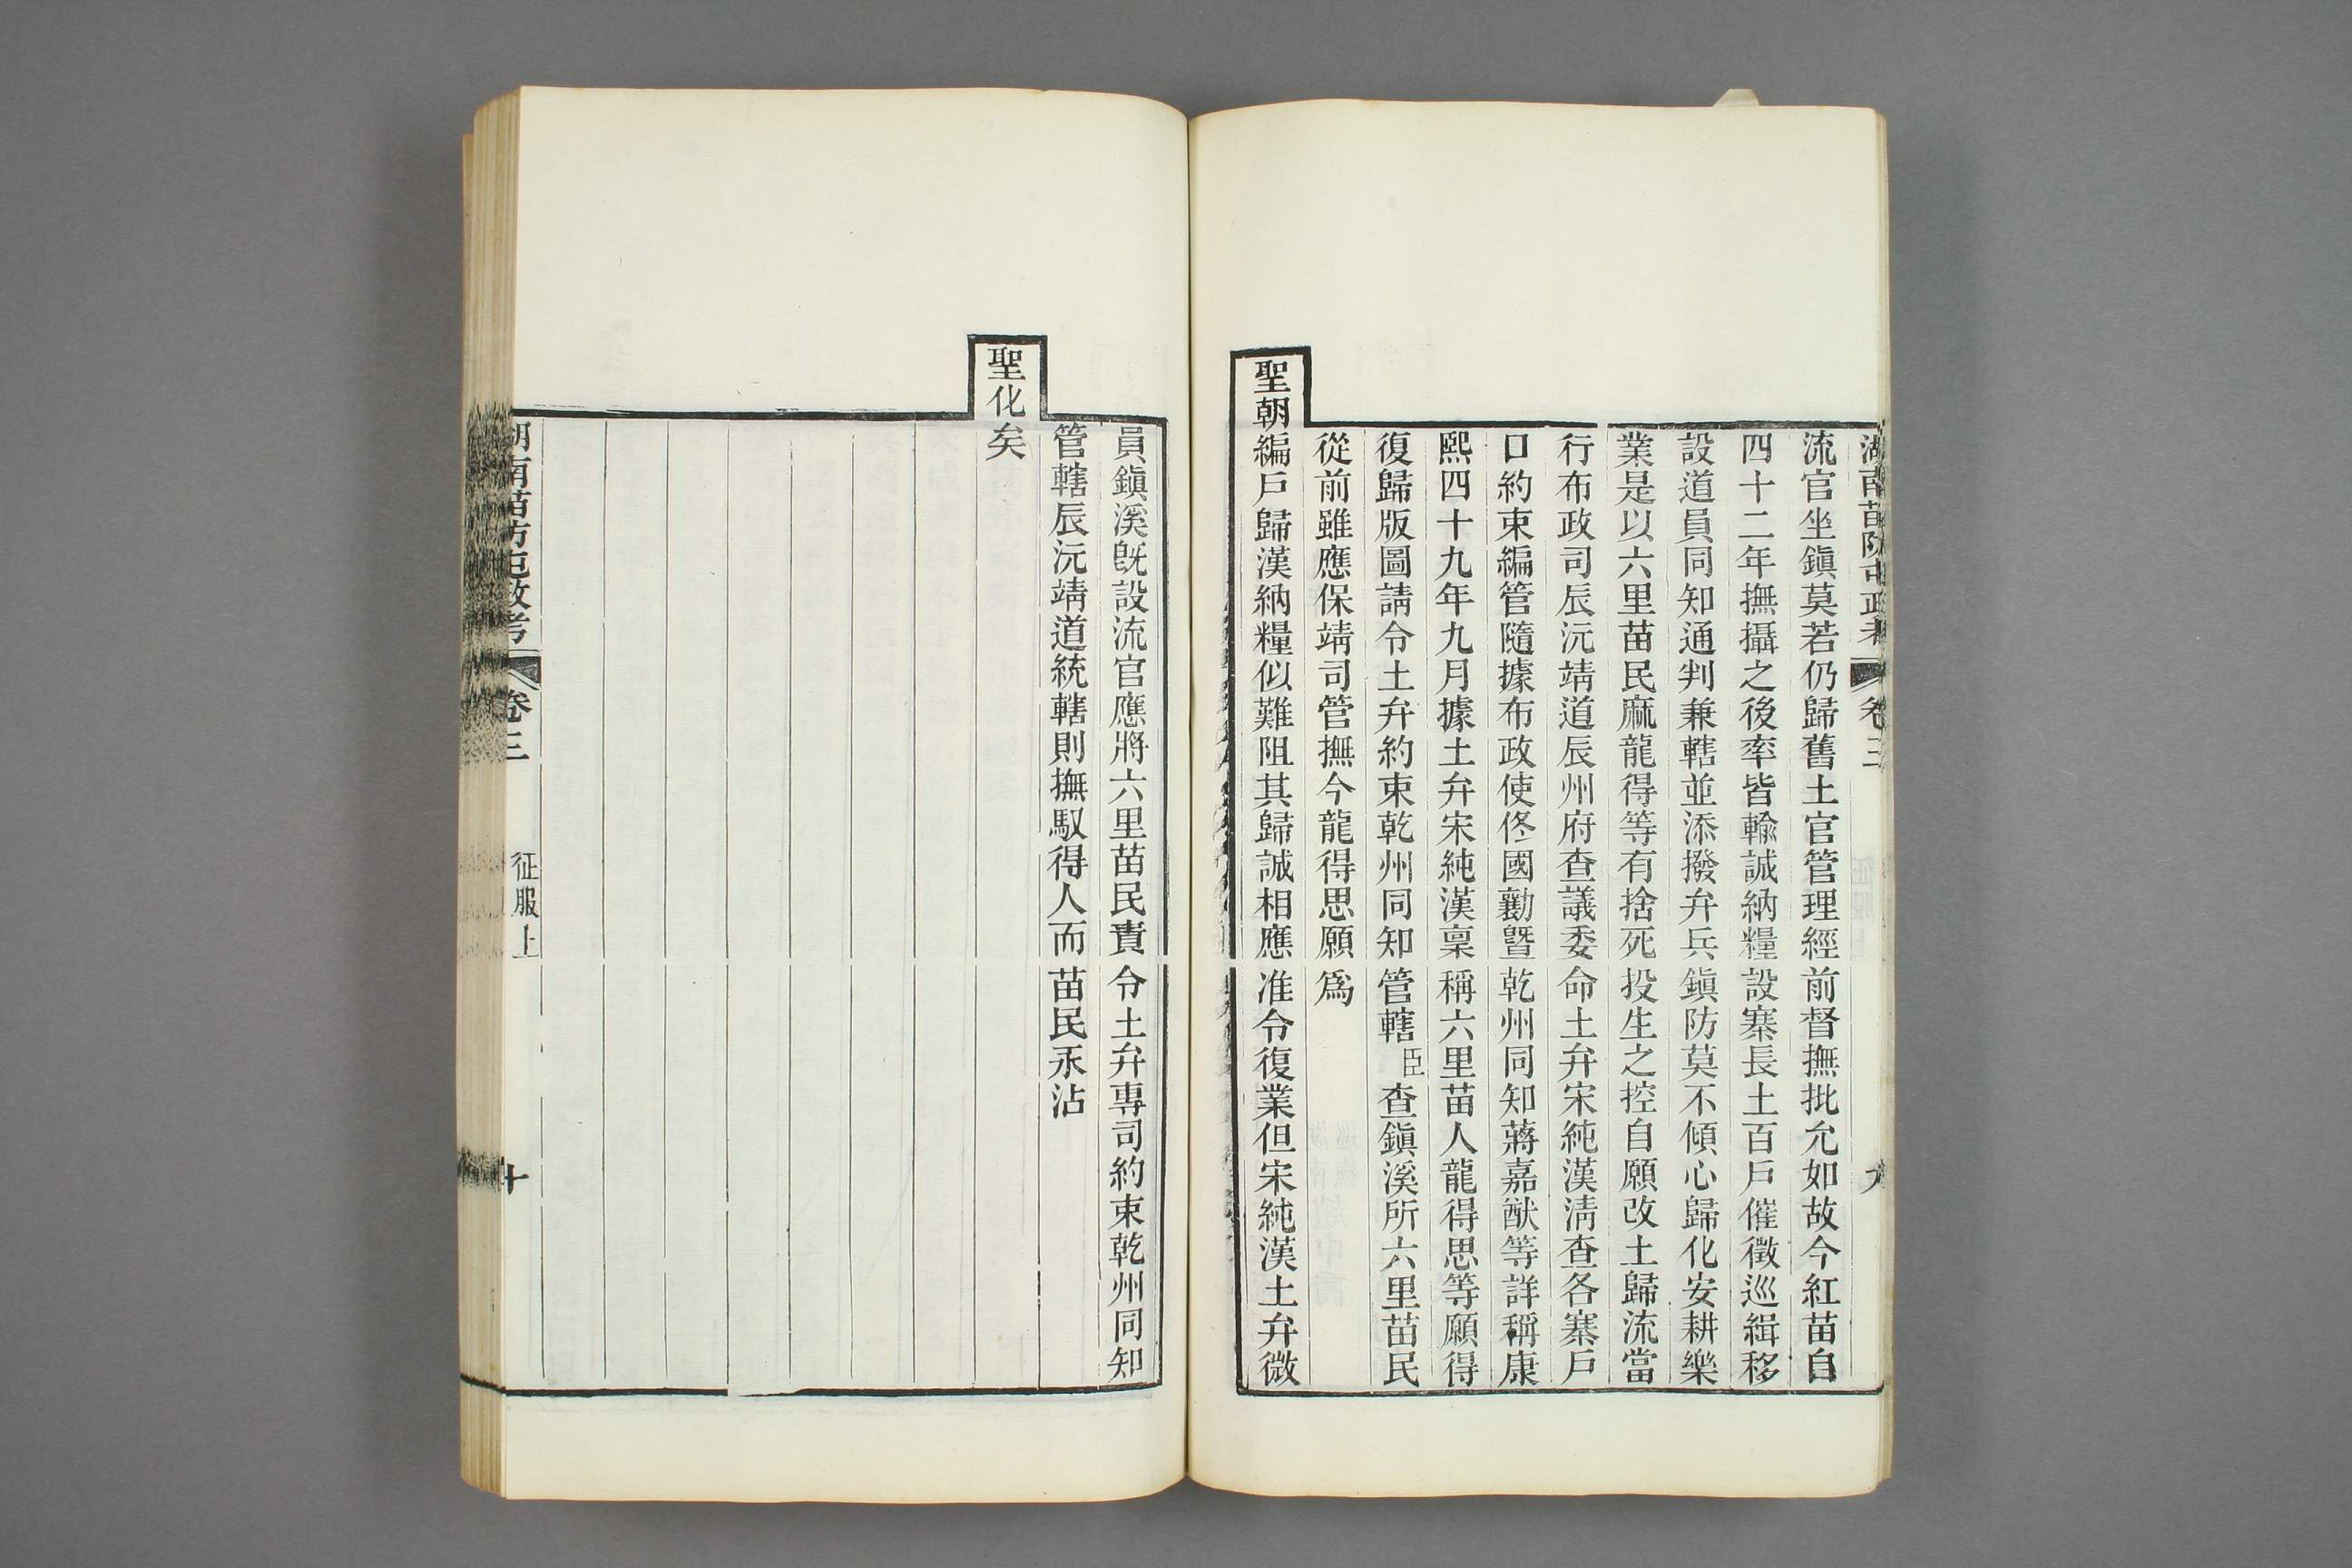 湖南苗防屯政考 卷三 九
流官坐鎭莫若仍歸舊土官管理經前督撫批允如故今紅苗自
四十二年撫攝之後率皆輸誠納糧設寨長土百戶催徵巡緝移
設道員同知通判兼轄並添撥弁兵鎭防莫不傾心歸化安耕樂
業是以六里苗民麻龍得等有捨死投生之控自願改土歸流當
行布政司辰沅靖道辰州府查議委命土弁宋純漢淸查各寨戶
口約束編管隨據布政使佟國勷曁乾州同知蔣嘉猷等詳稱康
熙四十九年九月據土弁宋純漢稟稱六里苗人龍得思等願得
復歸版圖請令土弁約束乾州同知管轄臣查鎭溪所六里苗民
從前雖應保靖司管撫今龍得思願爲
聖朝編戶歸漢納糧似難阻其歸誠相應准令復業但宋純漢土弁微
員鎭溪旣設流官應將六里苗民責令土弁專司約束乾州同知
管轄辰沅靖道統轄則撫馭得人而苗民永沾
聖化矣
湖南苗防屯政考 卷三 征服上 十